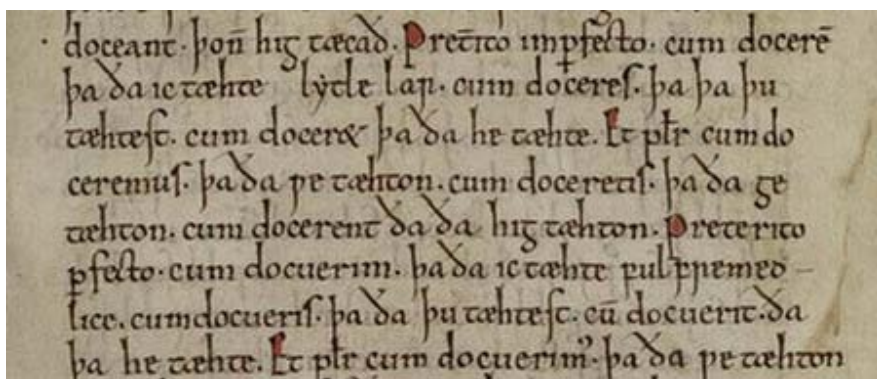 doceant· þoñ hig tæcað. Pret̄ito inp̄fecto· cum docerē
þa ða ic tæhte lẏtle lær. cum doceres. þa þa þu
tæhtest. cum docer& þa ða he tæhte. Et płr cum do
ceremus. þa ða ƿe tæhton. cum doceretis. þa ða ge
tæhton. cum docerent ða ða hig tæhton. Preterito
ꝑfecto· cum docuerim. þa ða ic tæhte fulfremed
lice. cum docueris. þa ða þu tæhtest. cū docuerit. ða
þa he tæhte. Et płr cum docuerimꝰ. þa ða ƿe tæhton